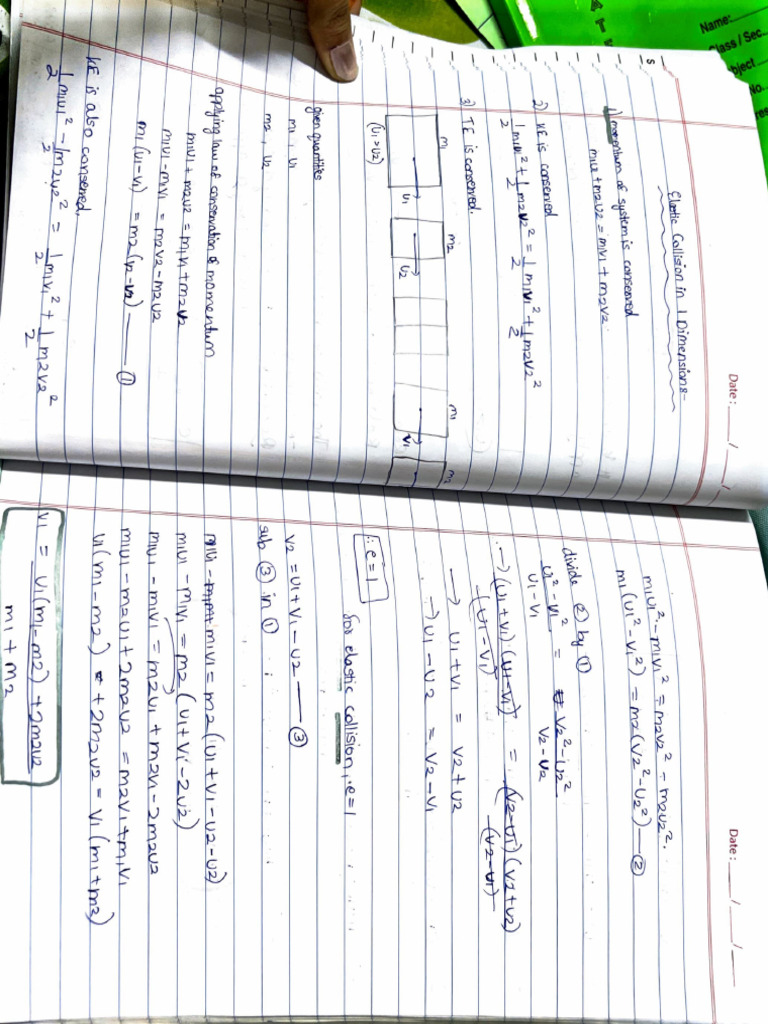 Name:
Class / Sec.
bject
No.
A
T
S
Date: ___/___/___
Elastic Collision in 1 Dimension:-
1) momentum of system is conserved
m1u1 + m2u2 = m1v1 + m2v2.
2) KE is conserved
1/2 m1u1² + 1/2 m2u2² = 1/2 m1v1² + 1/2 m2v2²
3) TE is conserved.
m1 m2 m1 m2
u1 u2 v1
(u1 > u2)
given quantities
m1, u1
m2, u2
applying law of conservation of momentum
m1u1 + m2u2 = m1v1 + m2v2
m1u1 - m1v1 = m2v2 - m2u2
m1 (u1 - v1) = m2 (v2 - u2) —— ①
KE is also conserved.
1/2 m1u1² - 1/2 m2u2² = 1/2 m1v1² + 1/2 m2v2²
Date: ___/___/___
m1u1² - m1v1² = m2v2² - m2u2².
m1(u1² - v1²) = m2(v2² - u2²) — ②
divide ② by ①
u1² - v1² / u1 - v1 = v2² - u2² / v2 - u2
→ (u1 + v1) (u1 - v1) / (u1 - v1) = (v2 - u2) (v2 + u2) / (v2 - u2)
→ u1 + v1 = v2 + u2
→ u1 - u2 = v2 - v1
∴ e = 1 for elastic collision, e = 1
v2 = u1 + v1 - u2 —— ③
sub ③ in ①
m1u1 - m1v1 = m2 (u1 + v1 - u2 - u2)
m1u1 - m1v1 = m2 (u1 + v1 - 2u2)
m1u1 - m1v1 = m2u1 + m2v1 - 2m2u2
m1u1 - m2u1 + 2m2u2 = m2v1 + m1v1
u1 (m1 - m2) + 2m2u2 = v1 (m1 + m2)
v1 = u1 (m1 - m2) + 2m2u2 / m1 + m2